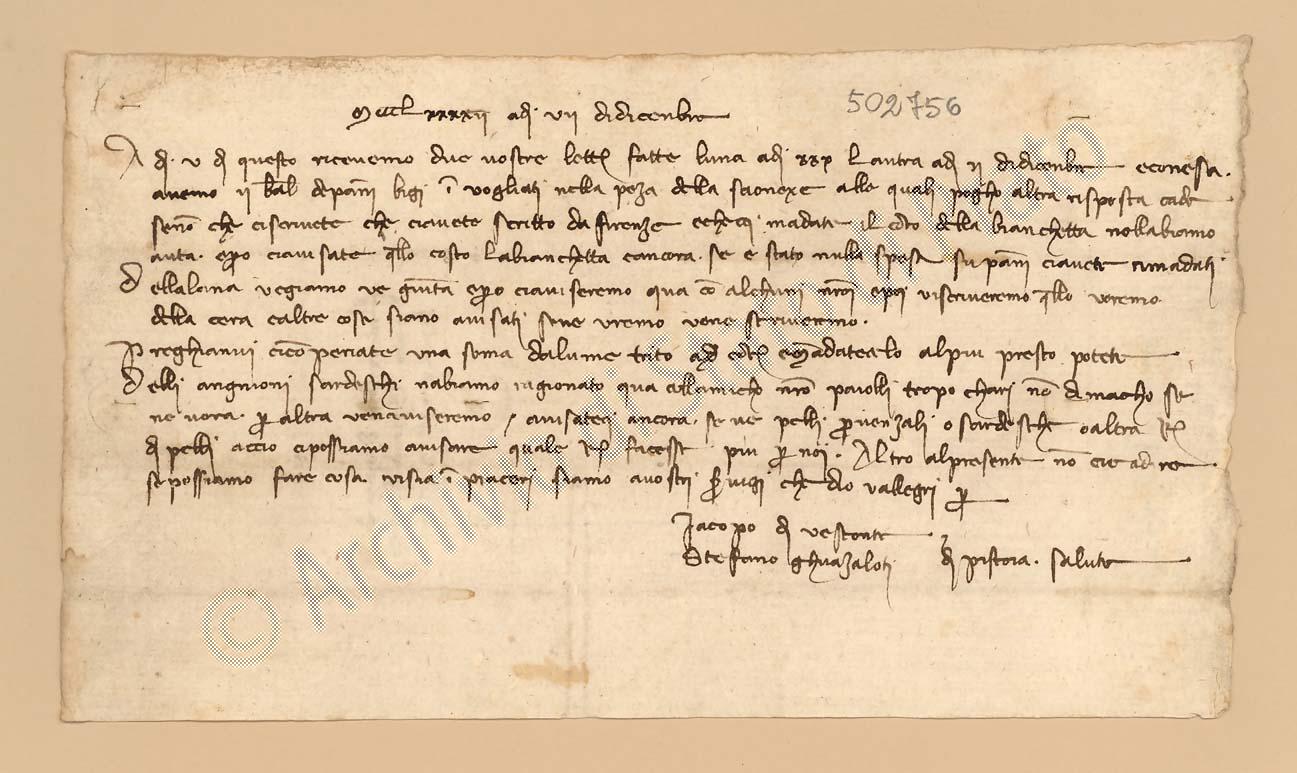 502756
MCCCLXXXXII adj vii didicenbre
Adj v dj questo ricevemo due vostre lett fatte luna adj xxx Laultra adj ii didicenbre econessa.
avemo ii ball depanni bigi i vogliati nella peza della alle quali pogho altra risposta cade
seno che ciscrivete che ciavete scritto da firenze echecci madate il coto della bianchetta nollabiamo
auta. epero ciavisate qllo costo Labianchetta eancora. se e stato nulla spesa su panni ciavete madati
Dellalana vegiamo ve giunta epero ciaviseremo qua co alchuni nri epoi viscriveremo qllo voremo
della cera ealtre cose siamo avisati sene vremo vene scriveremo.
Preghianvi cicoperiate una soma dalume trito ad emadatecelo alpiu presto potete
Delli angnioni sardeschi nabiamo ragionato qua nro pauolli tropo chari no dimacho se
ne vora. p altra venaviseremo / avisateci ancora. se ve pelli provenzali o sardesche oaltra
dj pelli accio cipossiamo avisare quale facesse piu p noi. Altro alpresente no cie ad re
sepossiamo fare cosa visia i piaceri siamo avostri che dio vallegri p
Jacopo dj vesconte
Stefano ghuazaloti dj pistoia. salute
© Archivio di Stato